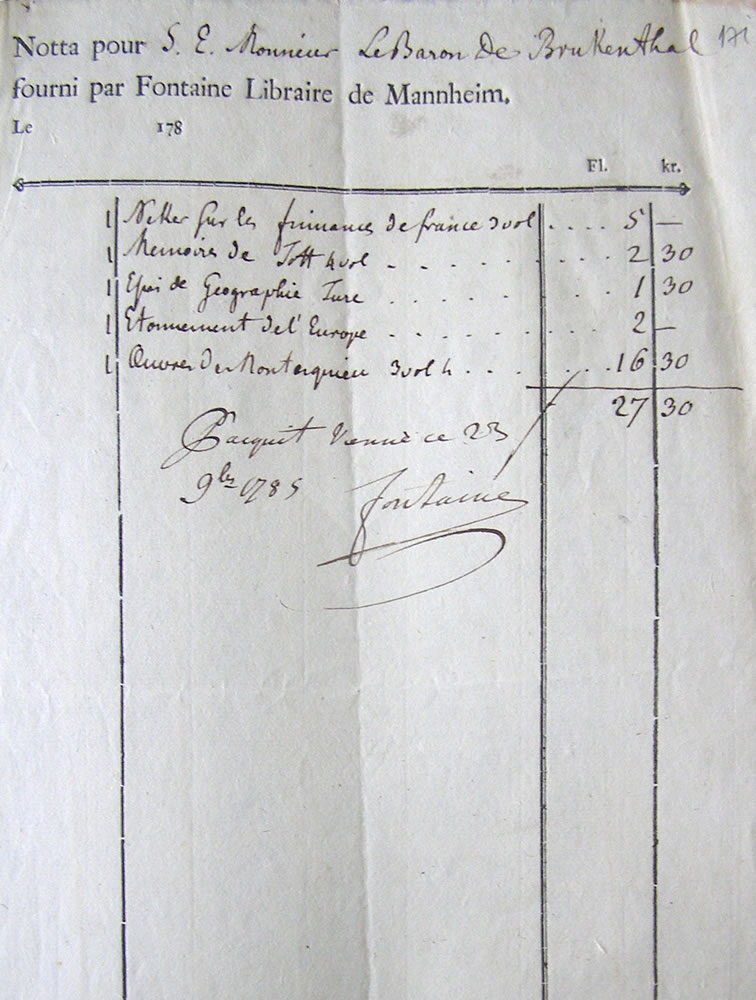 Notta pour S. E. Monsieur Le Baron De Brukenthal 171
fourni par Fontaine Libraire de Mannheim.
Le 178
Fl. kr.
1 Neker sur les finnances de france 3 vol .... 5 —
1 Memoires de Tott 4 vol - . . . . . . . 2 30
1 Essai de Geographie Turc . . . . . . . 1 30
1 Etonnement de l'Europe - . . . . . . . 2 —
1 Œuvres De Montesquieu 3 vol 4 . . . . . . 16 30
27 30
Pacquit Vienne ce 23
9bre 1785 Fontaine